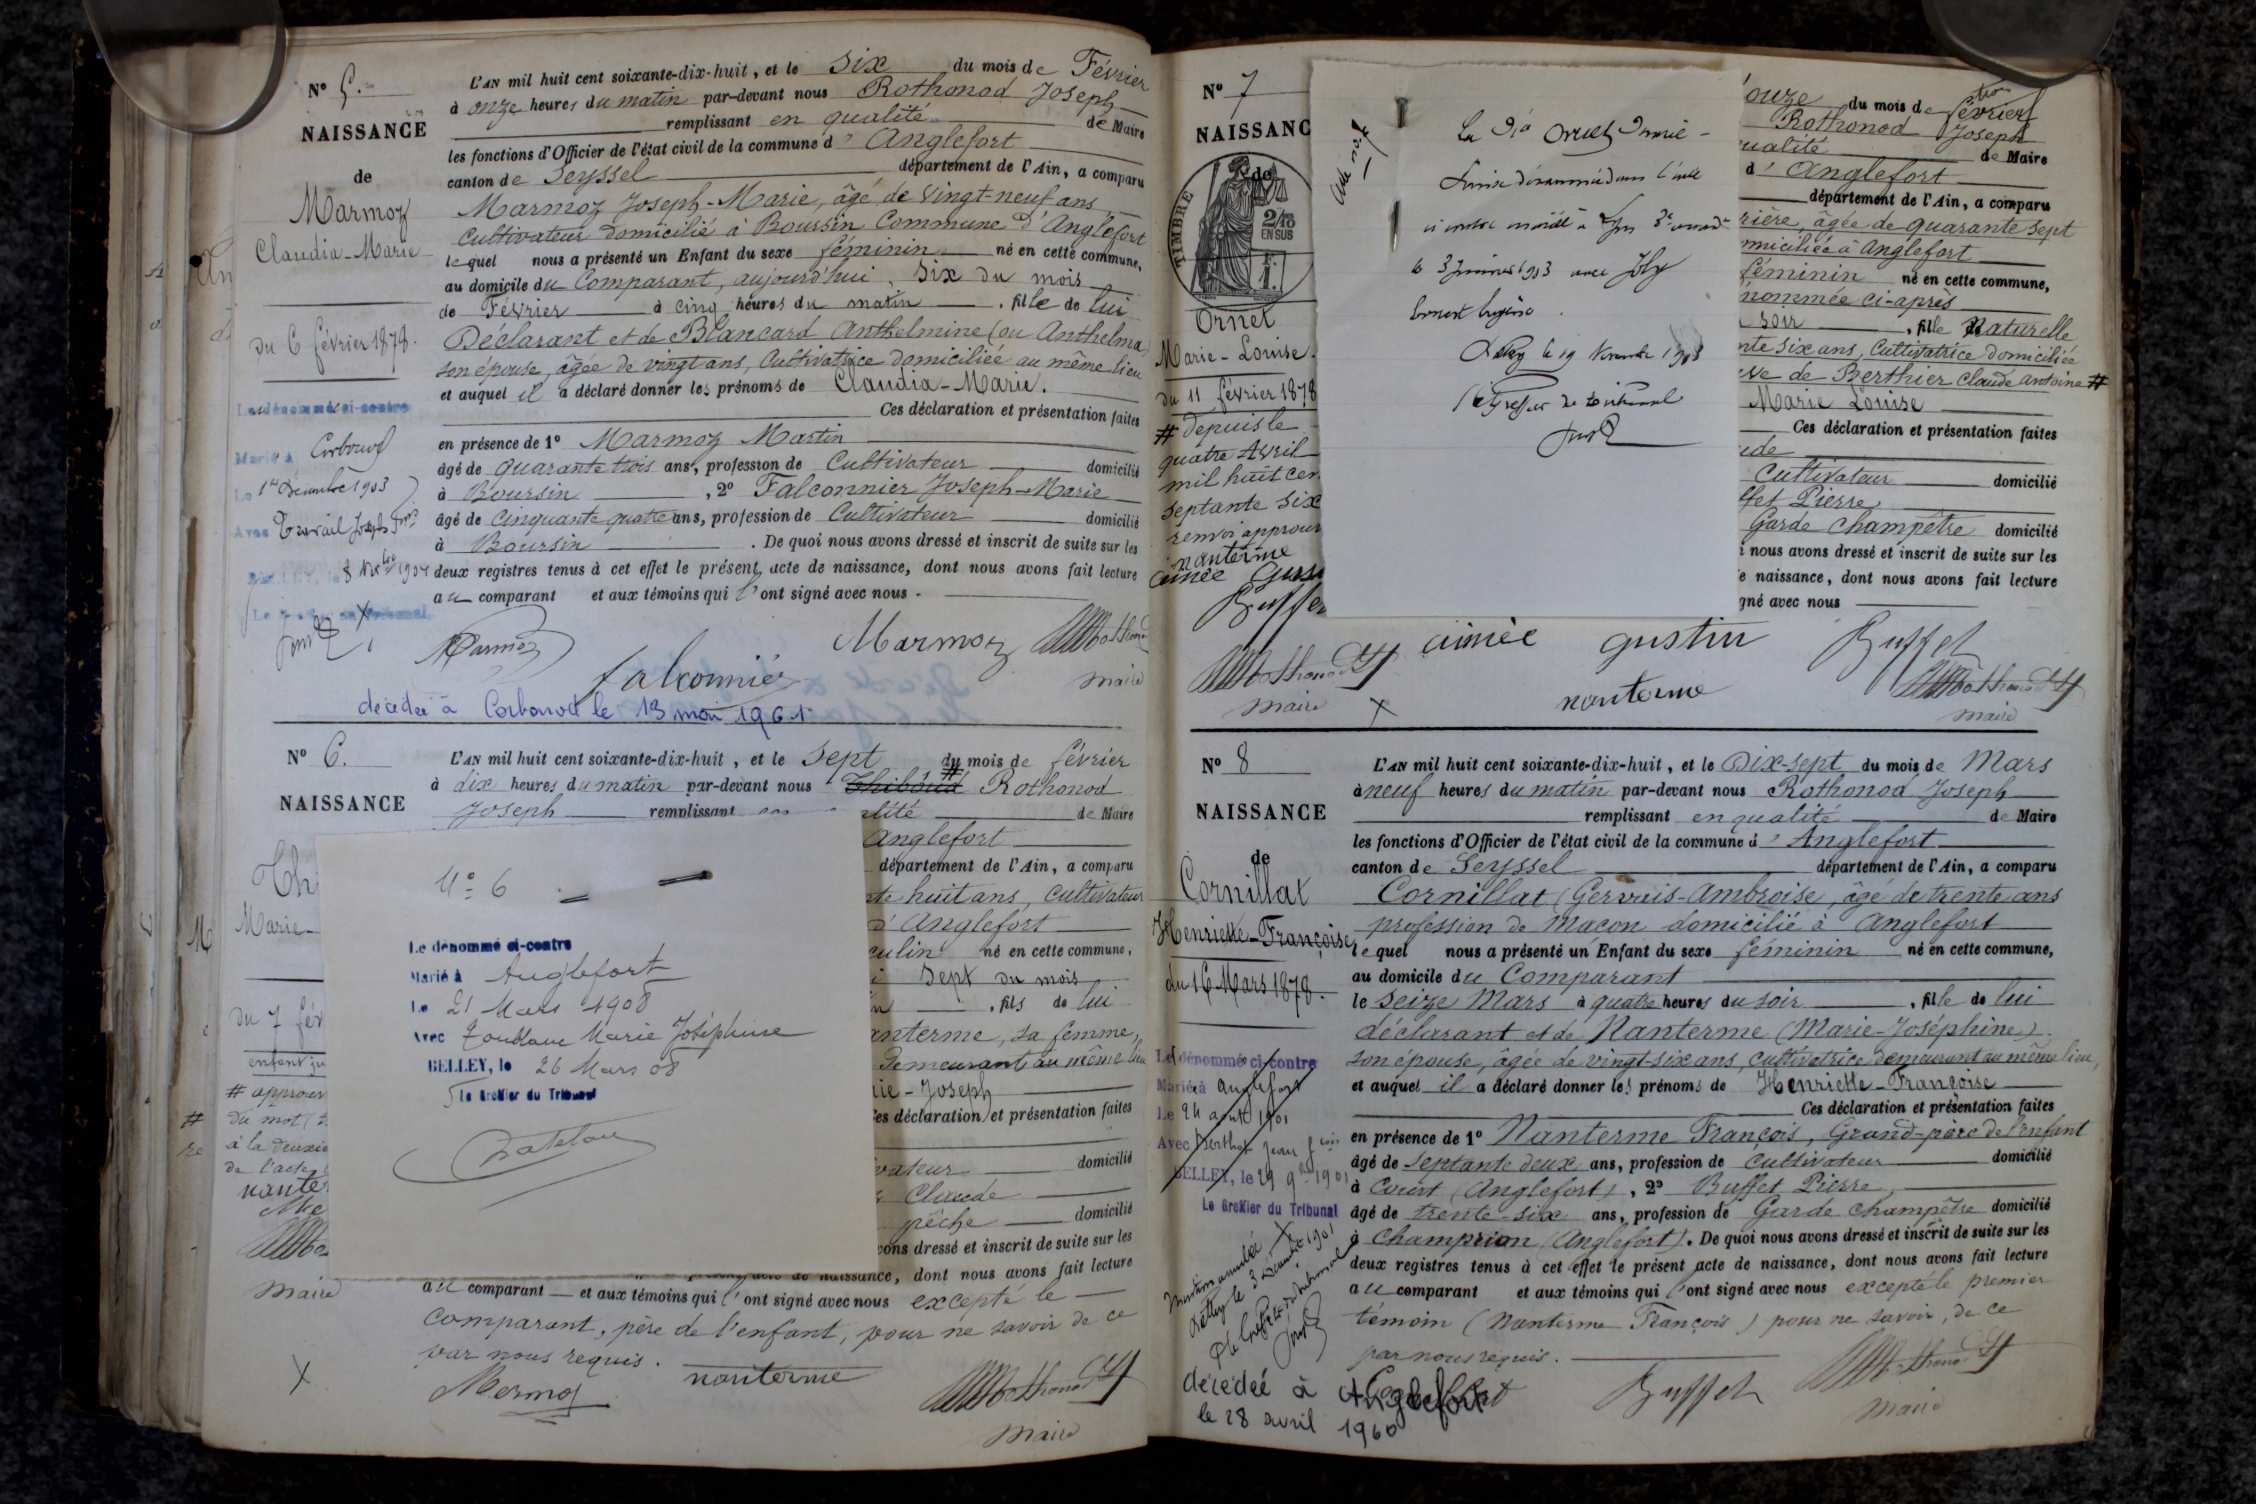 Nº 5.
NAISSANCE
de
Marmoz
Claudia-Marie
du 6 février 1878.
Le dénommé ci-contre
Marié à Corbonod
Le 1er Décembre 1903
Avec Travail Joseph
L'AN mil huit cent soixante-dix-huit, et le Six du mois de Février
à onze heures du matin par-devant nous Rothonod Joseph
remplissant en qualité de Maire
les fonctions d'Officier de l'état civil de la commune d' Anglefort
canton de Seyssel département de l'Ain, a comparu
Marmoz Joseph-Marie, âgé de vingt-neuf ans
Cultivateur domicilié à Boursin Commune d'Anglefort
lequel nous a présenté un Enfant du sexe féminin né en cette commune,
au domicile du Comparant, aujourd'hui Six du mois
de Février à cinq heures du matin, fille de lui
Déclarant et de Blancard Anthelmine (ou Anthelma)
son épouse, âgée de vingt ans, Cultivatrice domiciliée au même lieu
et auquel il a déclaré donner les prénoms de Claudia-Marie.
Ces déclaration et présentation faites
en présence de 1º Marmoz Martin
âgé de quarante trois ans, profession de Cultivateur domicilié
à Boursin, 2º Falconnier Joseph-Marie
âgé de Cinquante quatre ans, profession de Cultivateur domicilié
à Boursin. De quoi nous avons dressé et inscrit de suite sur les
deux registres tenus à cet effet le présent acte de naissance, dont nous avons fait lecture
au comparant et aux témoins qui l'ont signé avec nous.
Marmoz
Marmoz
falconnier
Rothonod
maire
décédée à Corbonod le 13 mai 1961.
Nº 6.
NAISSANCE
Th
Marie-
du 7 fév
# approuv
du mot
à la deuxiè
de l'acte
nante
Me
maire
L'AN mil huit cent soixante-dix-huit, et le Sept du mois de février
à dix heures du matin par-devant nous # Thiboud Rothonod
Joseph remplissant en qualité de Maire
Anglefort
département de l'Ain, a comparu
nte huit ans, cultivateur
d'Anglefort
culin né en cette commune,
Sept du mois
, fils de lui
anterme, sa femme,
Demeurant au même lieu
rie-Joseph
Ces déclaration et présentation faites
vateur domicilié
Claude
pêche domicilié
vons dressé et inscrit de suite sur les
naissance, dont nous avons fait lecture
au comparant et aux témoins qui l'ont signé avec nous excepté le
comparant, père de l'enfant, pour ne savoir de ce
par nous requis.
Mermoz
nanterme
Rothonod
maire
Nº 6
Le dénommé ci-contre
Marié à Anglefort
Le 21 Mars 1908
Avec Toublanc Marie Joséphine
BELLEY, le 26 Mars 08
Le Greffier du Tribunal
Nº 7
NAISSANC
de
TIMBRE
2/10
EN SUS
Ornet
Marie-Louise.
du 11 février 1878
# depuis le
quatre Avril
mil huit cen
septante six
renvoi approuv
nanterme
aimée Gus
Buffe
Rothonod
maire
La dte Ornet Marie-
Louise dénommée dans l'acte
ci contre mariée à Lyon 3e arrondt
le 3 Janvier 1903 avec Joly
Ernest Eugène.
Belley le 19 Novembre 1903
le Greffier du tribunal
ouze du mois de février
Rothonod Joseph
ualité de Maire
d' Anglefort
département de l'Ain, a comparu
rière, âgée de quarante sept
omiciliée à Anglefort
féminin né en cette commune,
énommée ci-après
soir, fille Naturelle
nte six ans, Cultivatrice domiciliée
uve de Berthier Claude antoine #
Marie Louise
Ces déclaration et présentation faites
ude
Cultivateur domicilié
ffet Pierre
Garde champêtre domicilié
i nous avons dressé et inscrit de suite sur les
e naissance, dont nous avons fait lecture
gné avec nous
aimée gustin Buffet
nanterme
Rothonod
maire
Nº 8
NAISSANCE
de
Cornillat
Henriette-Françoise
du 16 Mars 1878.
Le dénommé ci-contre
Marié à Anglefort
Le 24 août 1901
Avec Berthet Jean fçois
BELLEY, le 29 9bre 1901
Le Greffier du Tribunal
Mention annulée
Belley le 3 Décembre 1901
décédée à Anglefort
le 28 avril 1960
L'AN mil huit cent soixante-dix-huit, et le Dix-sept du mois de Mars
à neuf heures du matin par-devant nous Rothonod Joseph
remplissant en qualité de Maire
les fonctions d'Officier de l'état civil de la commune d' Anglefort
canton de Seyssel département de l'Ain, a comparu
Cornillat (Gervais-Ambroise, âgé de trente ans
profession de Macon domicilié à Anglefort
lequel nous a présenté un Enfant du sexe féminin né en cette commune,
au domicile du Comparant
le seize Mars à quatre heures du soir, fille de lui
déclarant et de Nanterme (Marie-Joséphine)
son épouse, âgée de vingt-six ans, cultivatrice demeurant au même lieu,
et auquel il a déclaré donner les prénoms de Henriette-Françoise
Ces déclaration et présentation faites
en présence de 1º Nanterme François, Grand-père de l'enfant
âgé de septante deux ans, profession de Cultivateur domicilié
à Court (Anglefort), 2º Buffet Pierre,
âgé de trente-six ans, profession de Garde champêtre domicilié
à Champrion (Anglefort). De quoi nous avons dressé et inscrit de suite sur les
deux registres tenus à cet effet le présent acte de naissance, dont nous avons fait lecture
au comparant et aux témoins qui l'ont signé avec nous excepté le premier
témoin (Nanterme François) pour ne savoir, de ce
par nous requis.
Buffet
Rothonod
maire